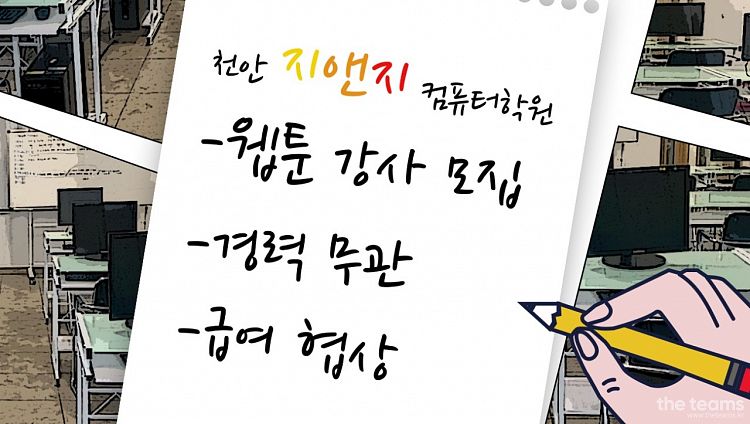 천안 지앤지 컴퓨터학원
-웹툰 강사 모집
-경력 무관
-급여 협상
the teams
www.theteams.kr